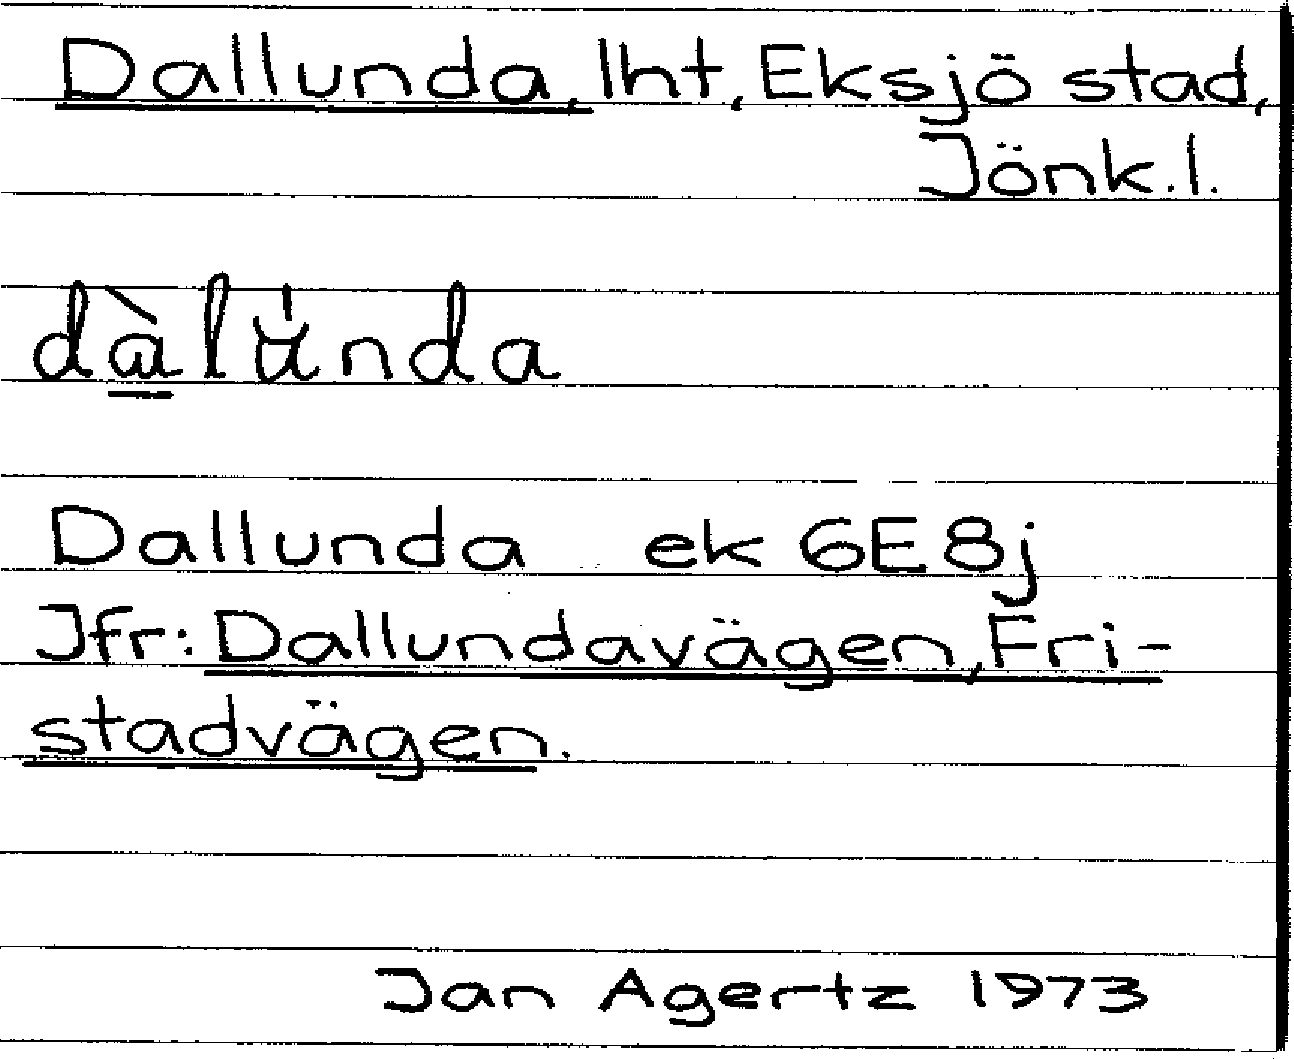 Dallunda, lht, Eksjö stad,
Jönk.l.
dàlúnda
Dallunda ek 6E8j
Jfr: Dallundavägen, Fri-
stadvägen.
Jan Agertz 1973